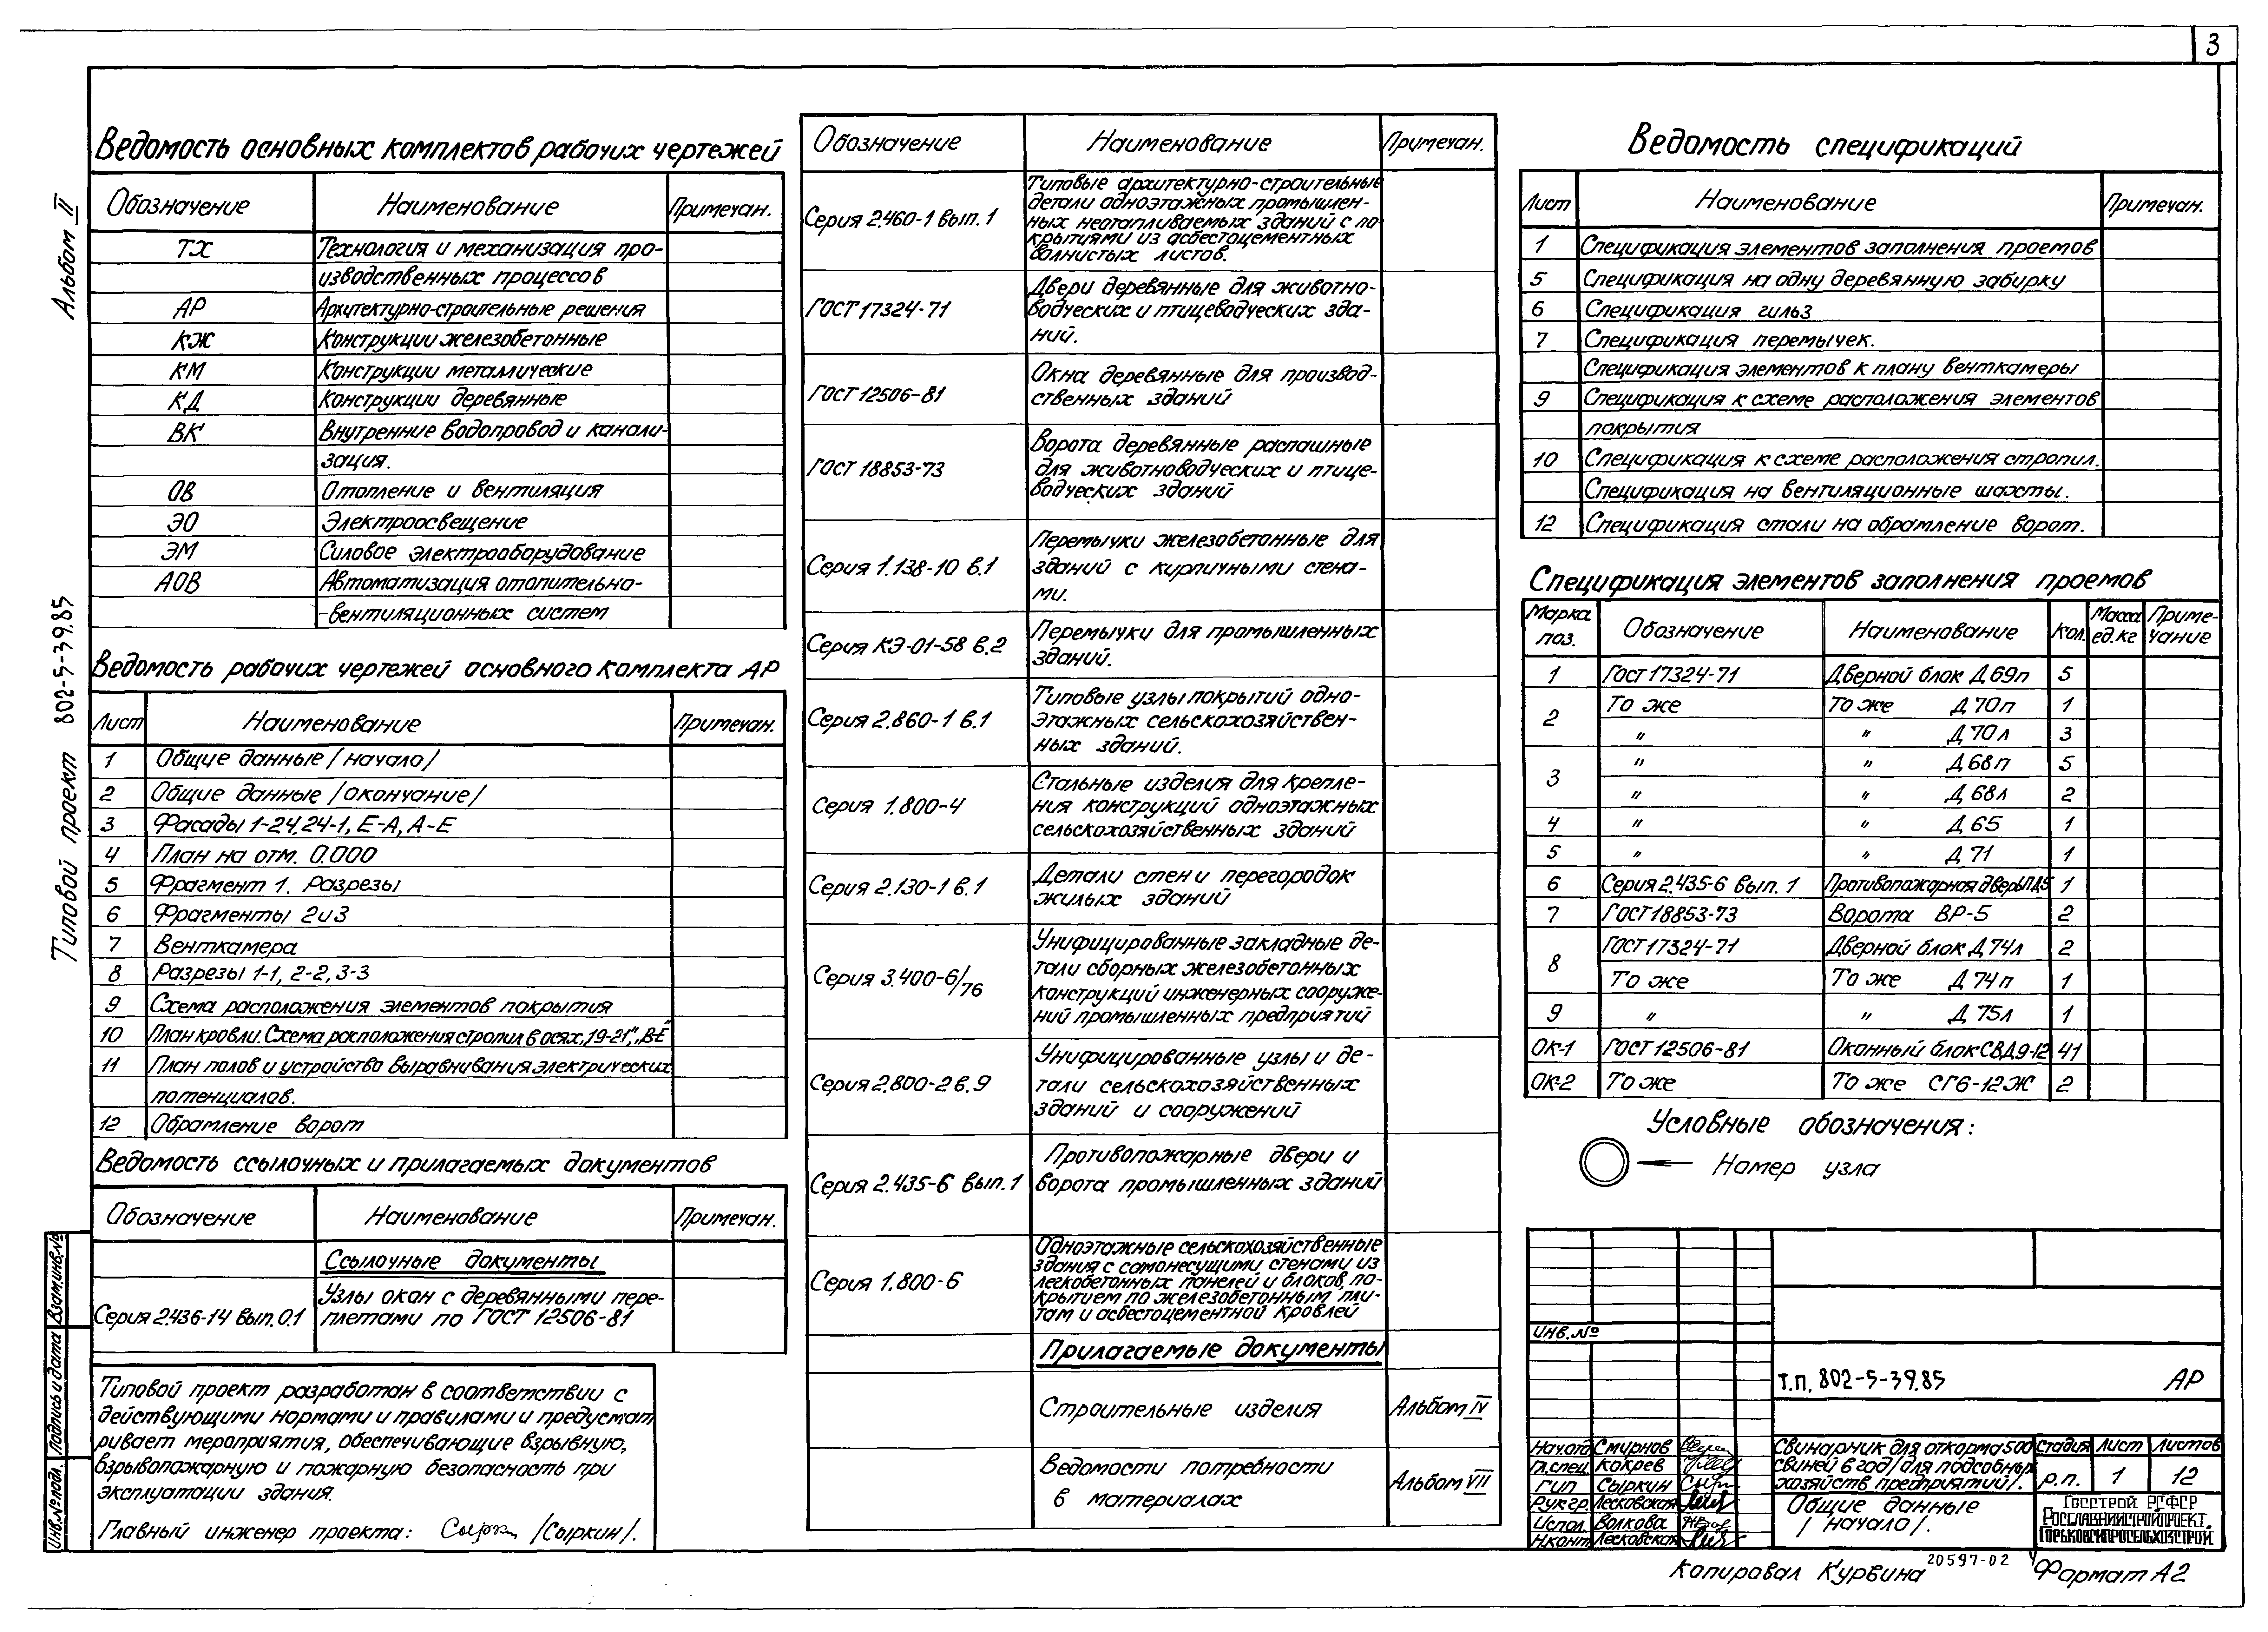 3
Альбом II
Типовой проект 802-5-39.85
Ведомость основных комплектов рабочих чертежей
Обозначение Наименование Примечан.
ТХ Технология и механизация про-
изводственных процессов
АР Архитектурно-строительные решения
КЖ Конструкции железобетонные
КМ Конструкции металлические
КД Конструкции деревянные
ВК Внутренние водопровод и канали-
зация.
ОВ Отопление и вентиляция
ЭО Электроосвещение
ЭМ Силовое электрооборудование
АОВ Автоматизация отопительно-
-вентиляционных систем
Ведомость рабочих чертежей основного комплекта АР
Лист Наименование Примечан.
1 Общие данные /начало/
2 Общие данные /окончание/
3 Фасады 1-24, 24-1, Е-А, А-Е
4 План на отм. 0.000
5 Фрагмент 1. Разрезы
6 Фрагменты 2 и 3
7 Венткамера
8 Разрезы 1-1, 2-2, 3-3
9 Схема расположения элементов покрытия
10 План кровли. Схема расположения стропил в осях „19-21", „В-Е"
11 План полов и устройство выравнивания электрических
потенциалов.
12 Обрамление ворот
Ведомость ссылочных и прилагаемых документов
Обозначение Наименование Примечан.
Ссылочные документы
Серия 2.436-14 вып. 0.1 Узлы окон с деревянными пере-
плетами по ГОСТ 12506-81
Типовой проект разработан в соответствии с
действующими нормами и правилами и предусмат
ривает мероприятия, обеспечивающие взрывную,
взрывопожарную и пожарную безопасность при
эксплуатации здания.
Главный инженер проекта: /Сыркин/.
Обозначение Наименование Примечан.
Серия 2.460-1 вып. 1 Типовые архитектурно-строительные
детали одноэтажных промышлен-
ных неотапливаемых зданий с по
крытиями из асбестоцементных
волнистых листов.
ГОСТ 17324-71 Двери деревянные для животно-
водческих и птицеводческих зда-
ний.
ГОСТ 12506-81 Окна деревянные для производ-
ственных зданий
ГОСТ 18853-73 Ворота деревянные распашные
для животноводческих и птице-
водческих зданий
Серия 1.138-10 в.1 Перемычки железобетонные для
зданий с кирпичными стена-
ми.
Серия КЭ-01-58 в.2 Перемычки для промышленных
зданий.
Серия 2.860-1 в.1 Типовые узлы покрытий одно-
этажных сельскохозяйствен-
ных зданий.
Серия 1.800-4 Стальные изделия для крепле-
ния конструкций одноэтажных
сельскохозяйственных зданий
Серия 2.130-1 в.1 Детали стен и перегородок
жилых зданий
Серия 3.400-6/76 Унифицированные закладные де-
тали сборных железобетонных
конструкций инженерных сооруже-
ний промышленных предприятий
Серия 2.800-2 в.9 Унифицированные узлы и де-
тали сельскохозяйственных
зданий и сооружений
Серия 2.435-6 вып. 1 Противопожарные двери и
ворота промышленных зданий
Серия 1.800-6 Одноэтажные сельскохозяйственные
здания с самонесущими стенами из
легкобетонных панелей и блоков, по-
крытием по железобетонным пли-
там и асбестоцементной кровлей
Прилагаемые документы
Строительные изделия Альбом IV
Ведомости потребности
в материалах Альбом VII
Ведомость спецификаций
Лист Наименование Примечан.
1 Спецификация элементов заполнения проемов
5 Спецификация на одну деревянную забирку
6 Спецификация гильз
7 Спецификация перемычек.
Спецификация элементов к плану венткамеры
9 Спецификация к схеме расположения элементов
покрытия
10 Спецификация к схеме расположения стропил.
Спецификация на вентиляционные шахты.
12 Спецификация стали на обрамление ворот.
Спецификация элементов заполнения проемов
Марка поз. Обозначение Наименование Кол. Масса ед. кг Приме-чание
1 Гост 17324-71 Дверной блок Д 69п 5
2 То же То же Д 70п 1
" " Д 70л 3
3 " " Д 68п 5
" " Д 68л 2
4 " " Д 65 1
5 " " Д 71 1
6 Серия 2.435-6 вып. 1 Противопожарная дверь ПД5 1
7 ГОСТ 18853-73 Ворота ВР-5 2
8 ГОСТ 17324-71 Дверной блок Д 74л 2
То же То же Д 74п 1
9 " " Д 75л 1
ОК-1 ГОСТ 12506-81 Оконный блок СВД9-12 41
ОК-2 То же То же СГ6-12Ж 2
Условные обозначения:
Номер узла
Инв. №
т.п. 802-5-39.85 АР
Нач.отд Смирнов
Гл.спец. Кокрев
ГИП Сыркин
Рук.гр. Лесковская
Испол. Волкова
Н.конт Лесковская
Свинарник для откорма 500
свиней в год /для подсобных
хозяйств предприятий/.
Стадия Лист Листов
р.п. 1 12
Общие данные
/начало/.
Госстрой РСФСР
Росглавниистройпроект
Горьковгипросельхозстрой
Взам.инв.№
Подпись и дата
Инв.№ подл.
Копировал Курвина 20597-02 4 Формат А2